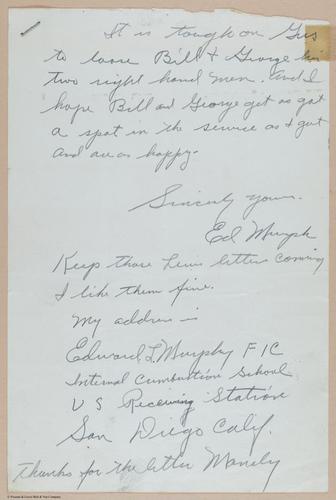 It is tough on Gus
to loose Bill & George his
two right hand men. And I
hope Bill and George get as got
a spot in the service as I got
and are as happy.
Sincerly yours.
Ed Murph
Keep those letters coming
I like them fine.
My address is
Edward L Murphy F1C
Internal Cumbustion School
U S Receiving Station
San Diego Calif.
Thanks for the letter